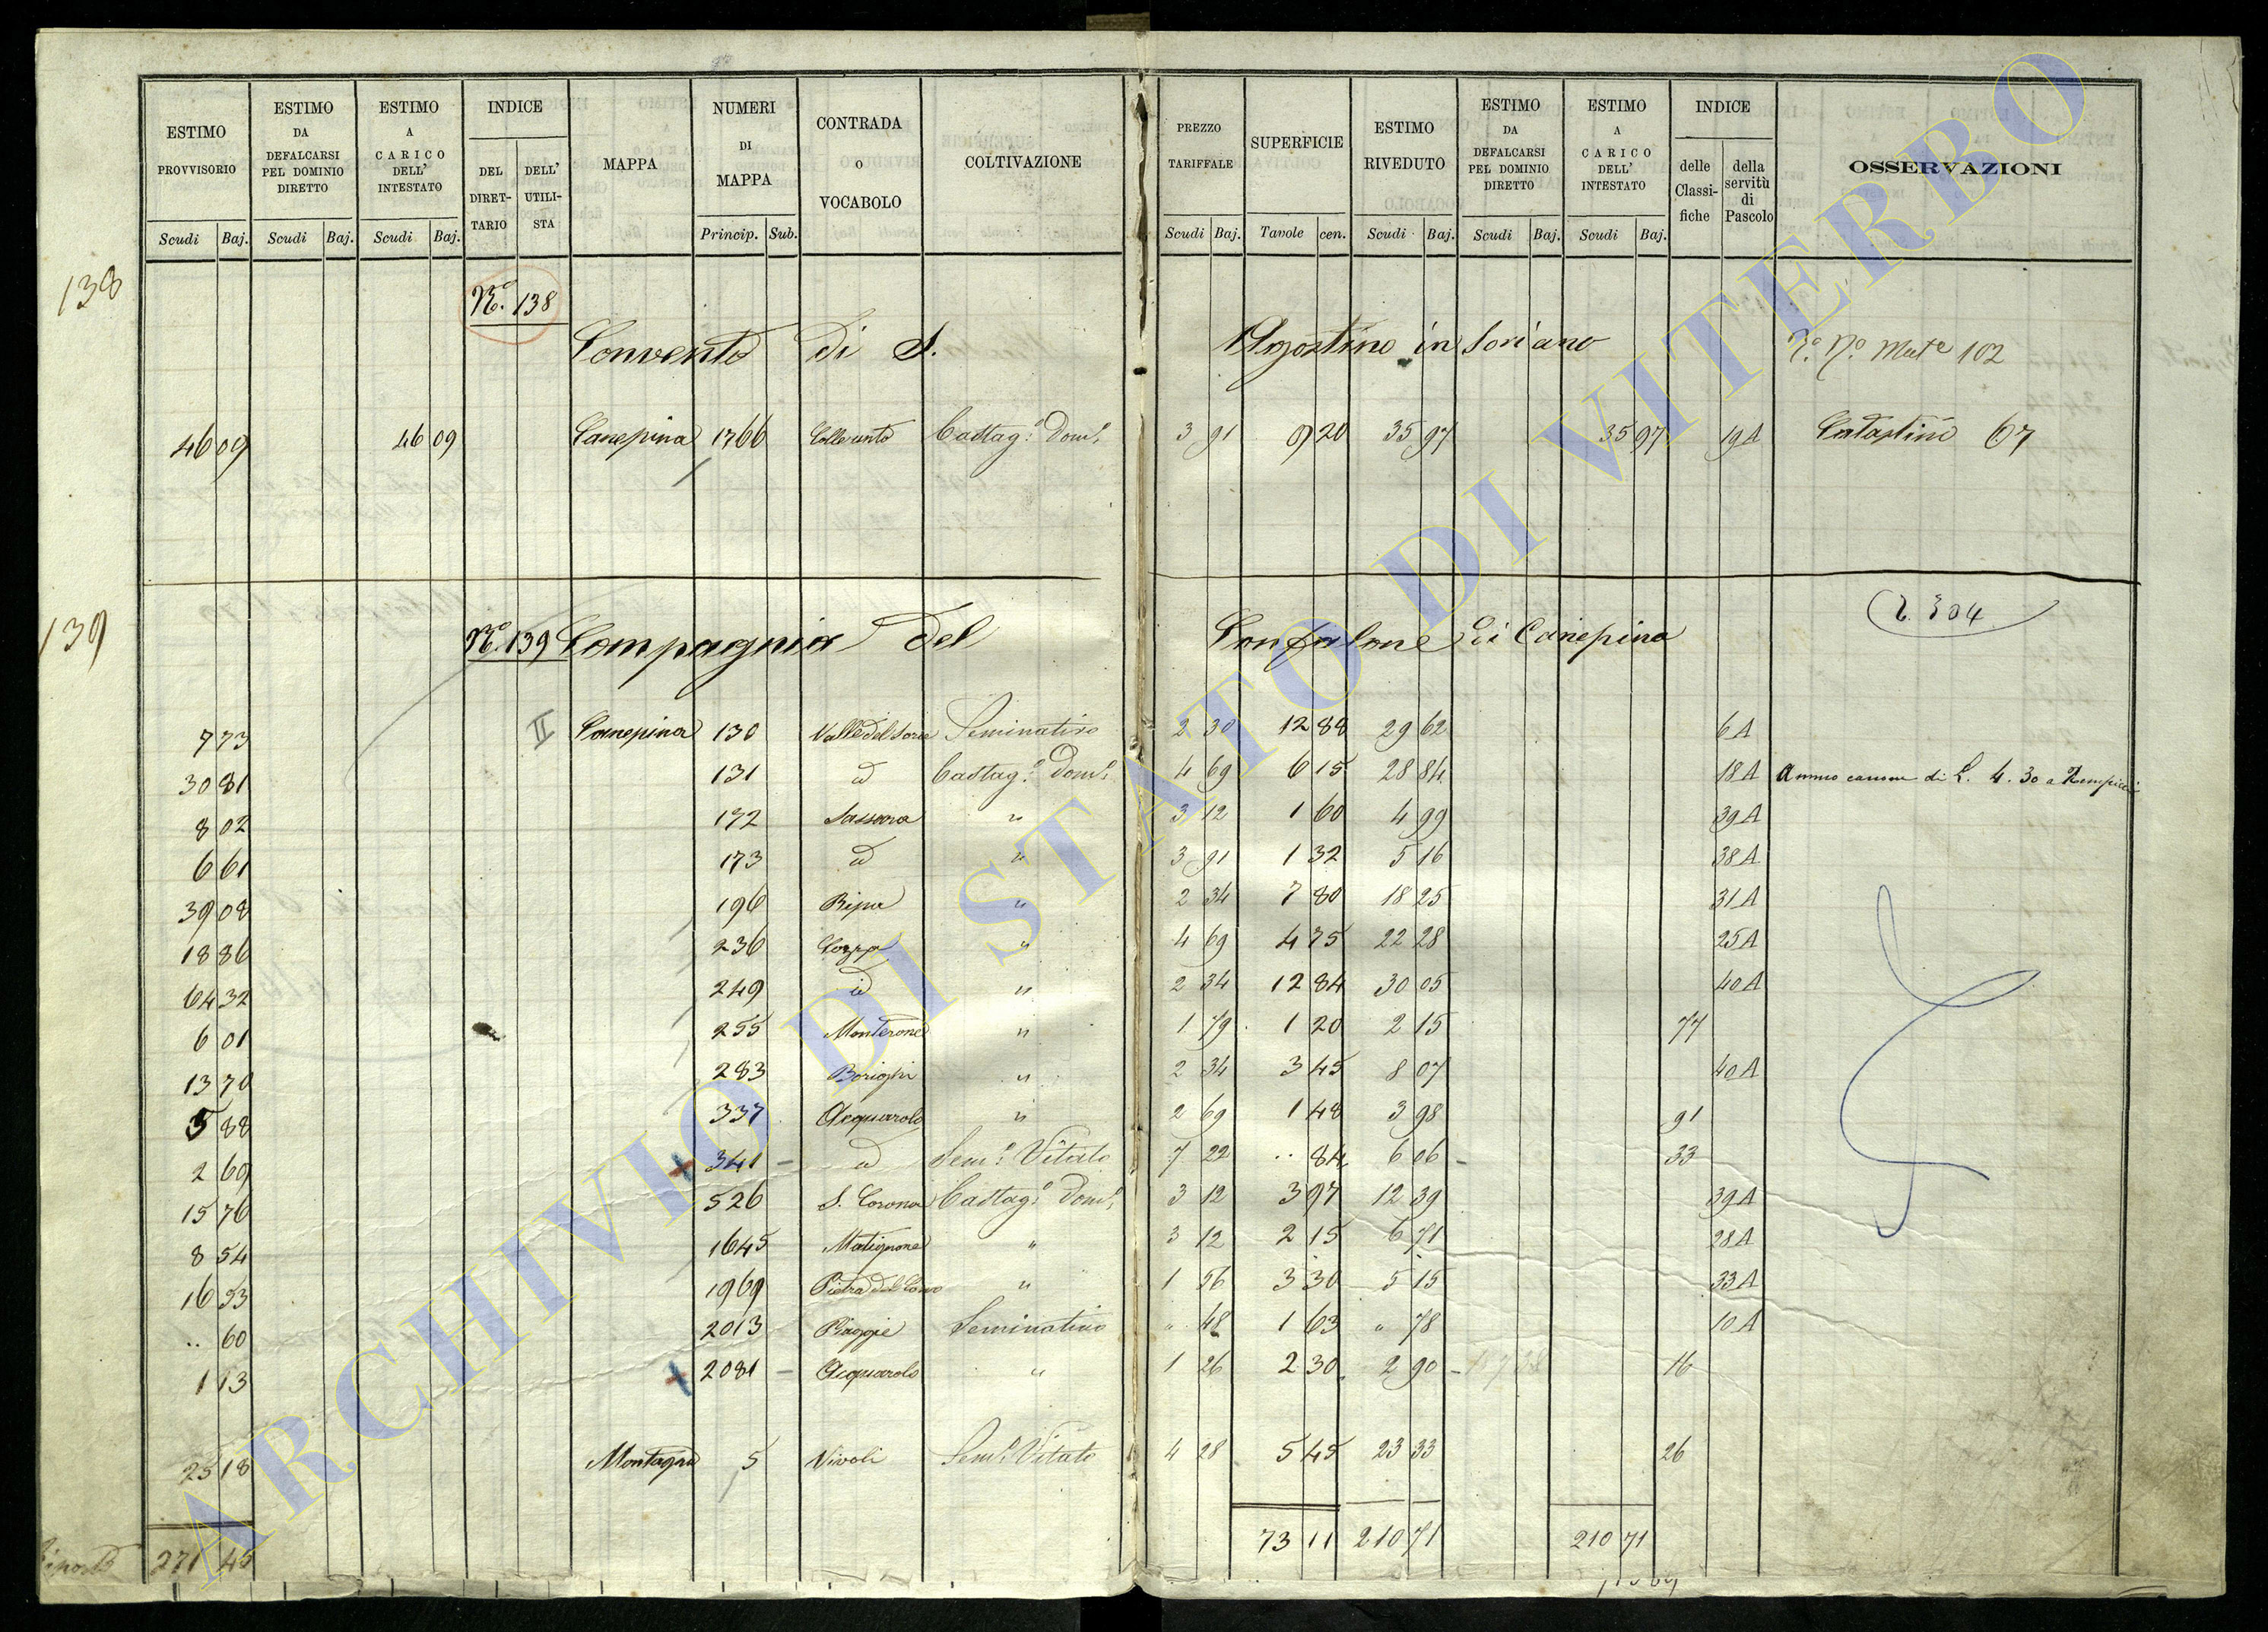 ESTIMO PROVVISORIO Scudi Baj.
ESTIMO DA DEFALCARSI PEL DOMINIO DIRETTO Scudi Baj.
ESTIMO A CARICO DELL' INTESTATO Scudi Baj.
INDICE DEL DIRETTARIO DELL' UTILISTA
MAPPA
NUMERI DI MAPPA Princip. Sub.
CONTRADA O VOCABOLO
COLTIVAZIONE
PREZZO TARIFFALE Scudi Baj.
SUPERFICIE Tavole cen.
ESTIMO RIVEDUTO Scudi Baj.
ESTIMO DA DEFALCARSI PEL DOMINIO DIRETTO Scudi Baj.
ESTIMO A CARICO DELL' INTESTATO Scudi Baj.
INDICE delle Classifiche della servitù di Pascolo
OSSERVAZIONI
138 N.º 138
Convento di S. Agostino in Soriano 102
46 09 46 09 Canepina 1766 Castag.º Dom.º 3 91 9 20 35 97 35 97 19A Catastino 67
139 N.º 139 Compagnia del Gonfalone di Canepina 304
7 73 II Canepina 130 Seminativo 2 30 12 88 29 62 6A
30 81 131 id Castag.º Dom.º 4 69 6 15 28 84 18A Annuo canone di L. 4.30 a
8 02 172 " 3 12 1 60 4 99 39A
6 61 173 id " 3 91 1 32 5 16 38A
39 08 196 Ripa " 2 34 7 80 18 25 31A
18 86 236 " 4 69 4 75 22 28 25A
64 32 249 id " 2 34 12 84 30 05 40A
6 01 255 Monterone " 1 79 1 20 2 15 77
13 70 283 " 2 34 3 45 8 07 40A
5 88 337 Acquarolo " 2 69 1 48 3 98 91
2 69 + 341 id Sem.º Vitato 7 22 .. 84 6 06 33
15 76 526 S. Corona Castag.º Dom.º 3 12 3 97 12 39 39A
8 54 1645 Matignone " 3 12 2 15 6 71 28A
16 53 1969 " 1 56 3 30 5 15 33A
.. 60 2013 Piaggie Seminativo " 48 1 63 " 78 10A
1 13 + 2081 Acquarolo " 1 26 2 30 2 90 16
25 18 Montagna 5 Vivoli Sem.º Vitato 4 28 5 45 23 33 26
271 45 73 11 210 71 210 71
ARCHIVIO DI STATO DI VITERBO